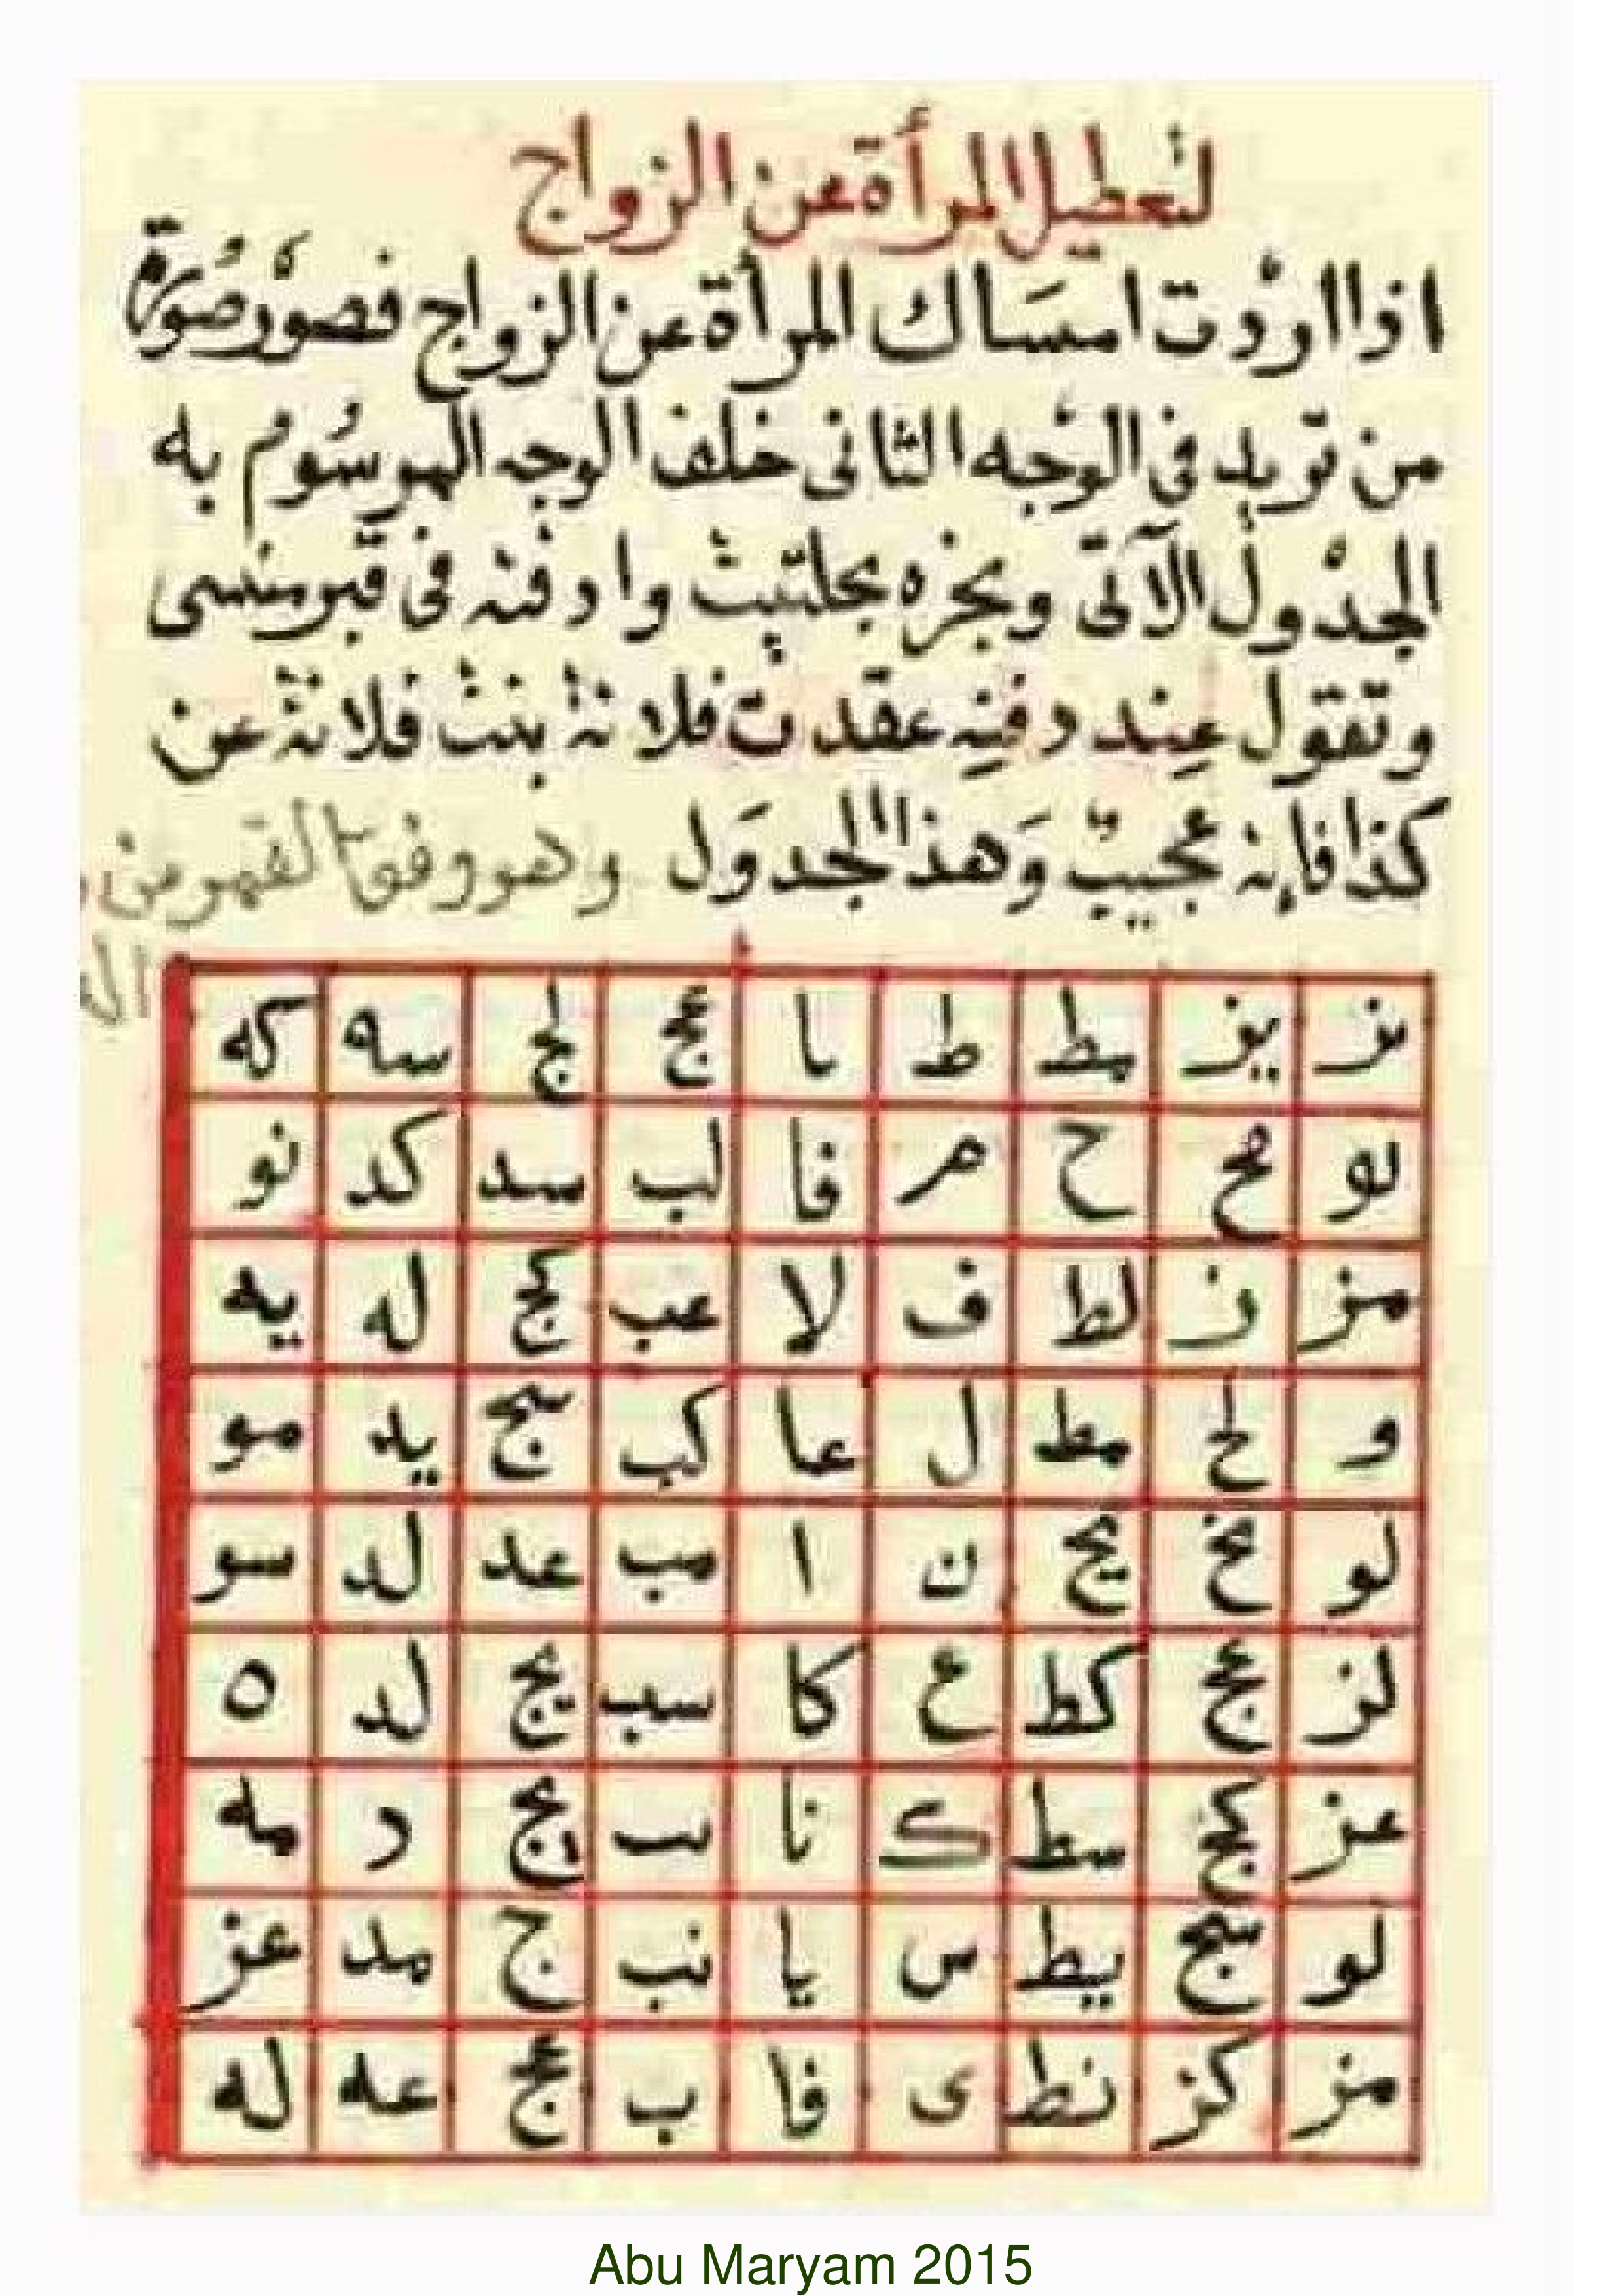 لتعطيل المرأة عن الزواج
اذا اردت امساك المرأة عن الزواج فصور صورة
من تريد في الوجه الثانى خلف الوجه المرسوم به
الجدول الآتى وبخره بحلتيت وادفنه فى قبر منسى
وتقول عند دفنه عقدت فلانة بنت فلانة عن
كذا فإنه عجيب وهذا الجدول وهو وفق القمر من
نز يز مط ط با عج لج سه كه
لو مح ح م فا لب سد كد نو
مز ز لط ف لا عب كج له يه
و لح مط ل عا كب سج يد مو
لو عح يح ن ا مب عد لد سو
لز عج كط ع كا سب يج لد ه
عز كج سط ك نا يج د مه
لو سج يط س يا نب ج مد عز
مز كز نط ى فا ب عج عه له
Abu Maryam 2015